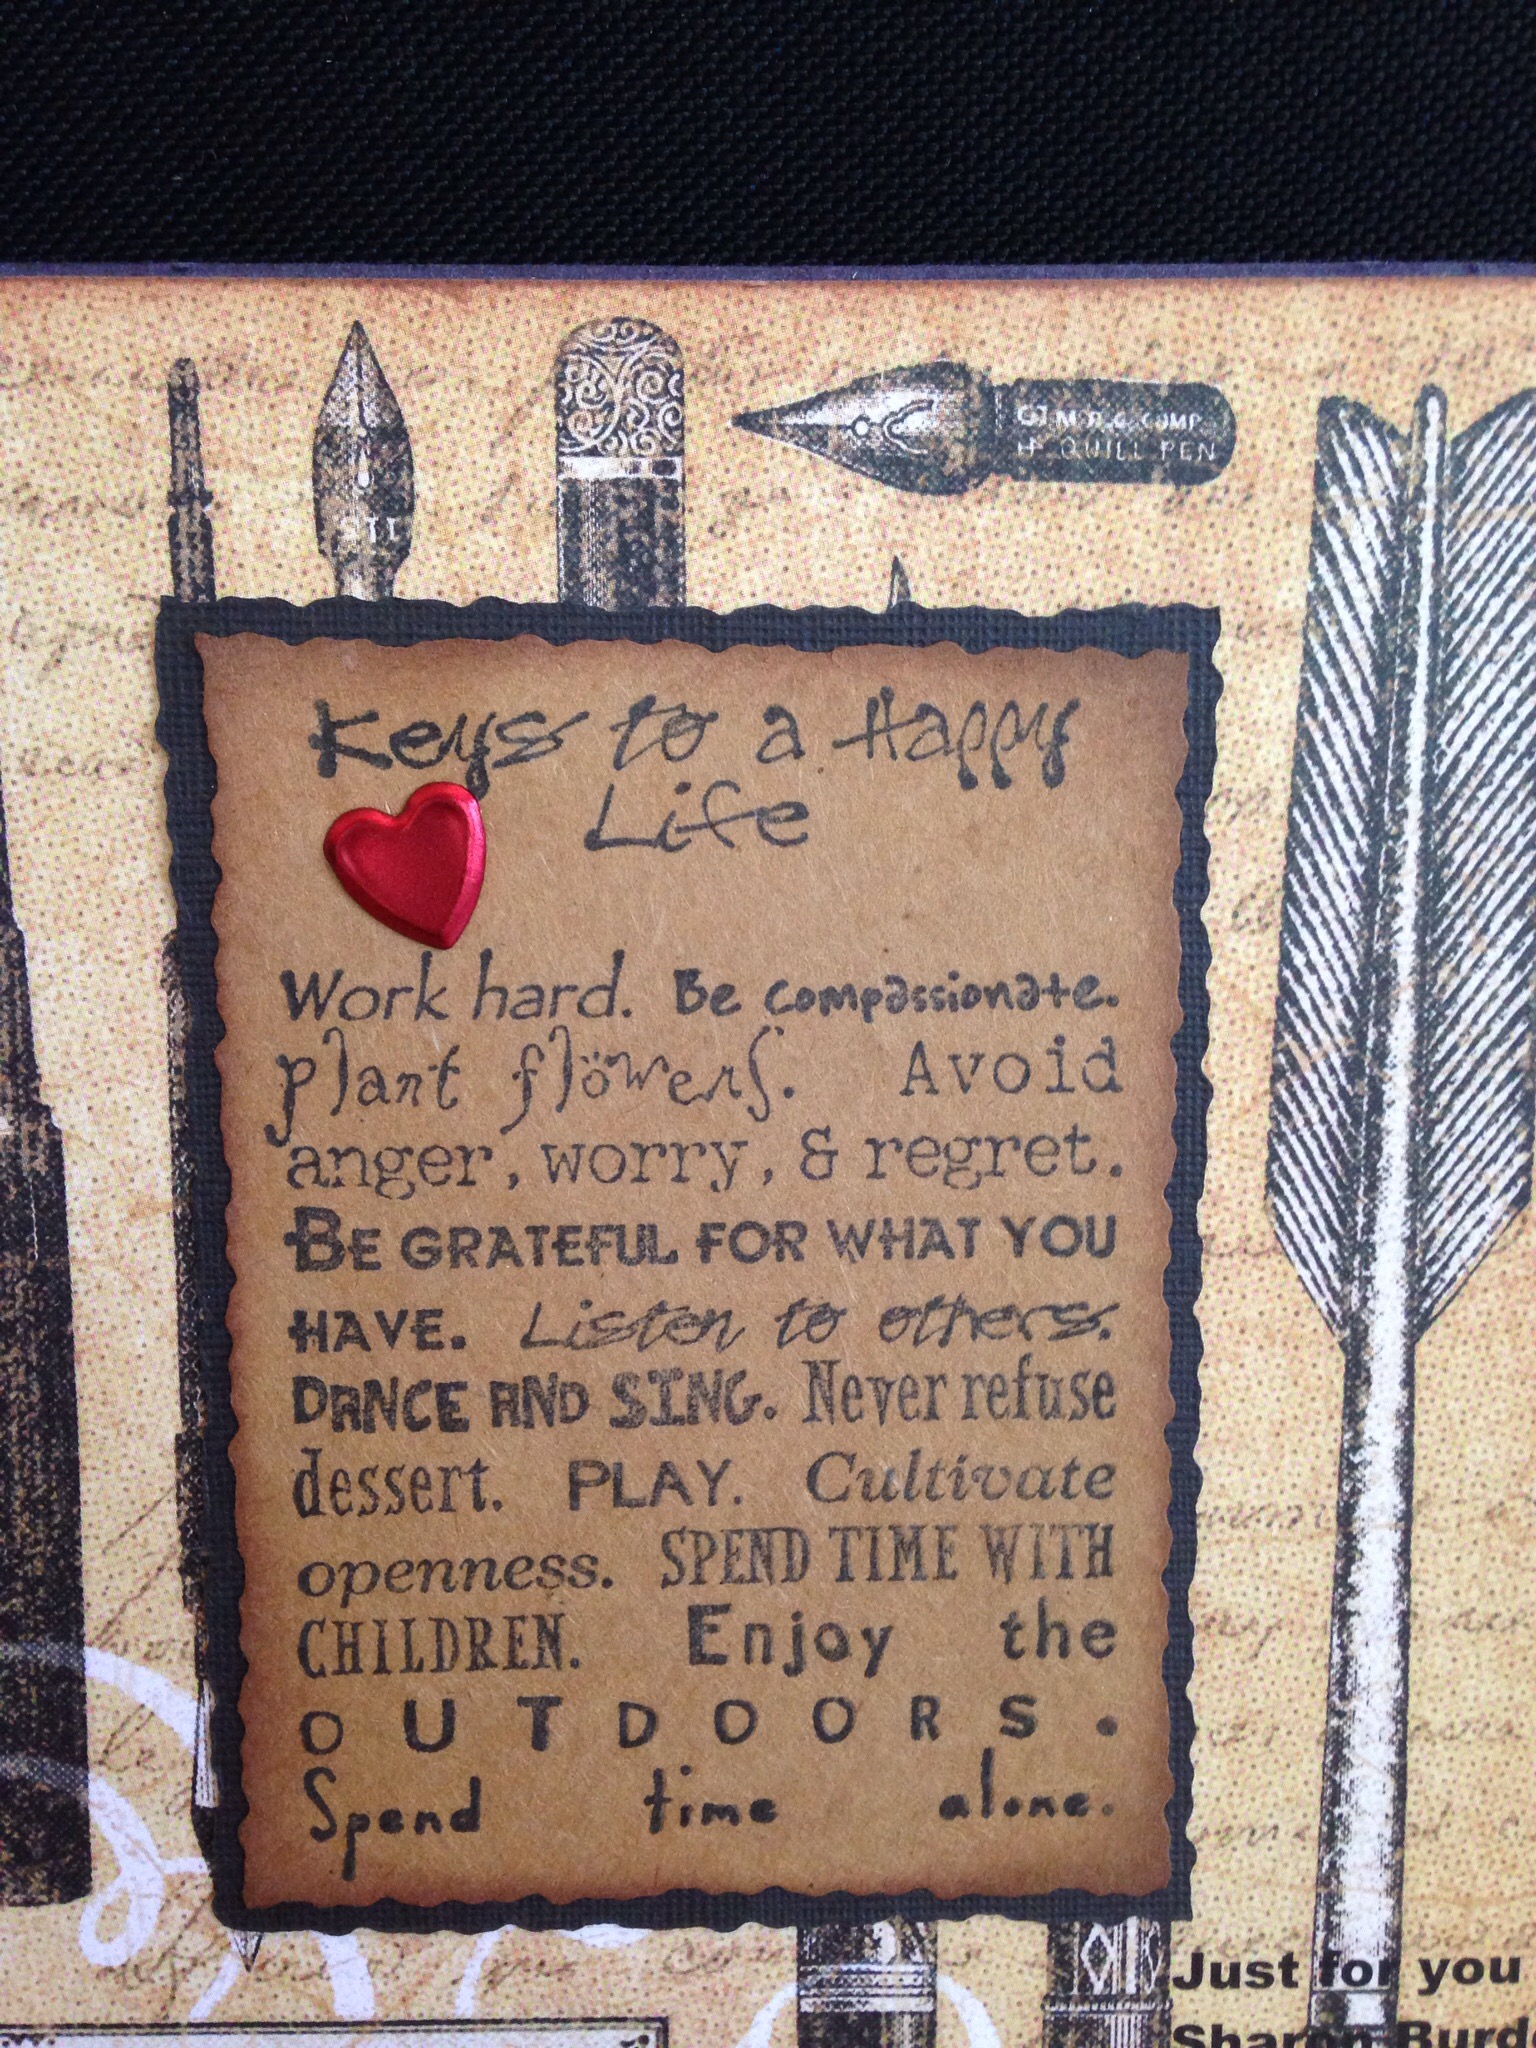 G7 M.R.C. COMP
H QUILL PEN
Keys to a Happy
Life
Work hard. Be compassionate.
plant flöwers. Avoid
anger, worry, & regret.
BE GRATEFUL FOR WHAT YOU
HAVE. Listen to others.
DANCE AND SING. Never refuse
dessert. PLAY. Cultivate
openness. SPEND TIME WITH
CHILDREN. Enjoy the
OUTDOORS.
Spend time alone.
Just for you
Sharon